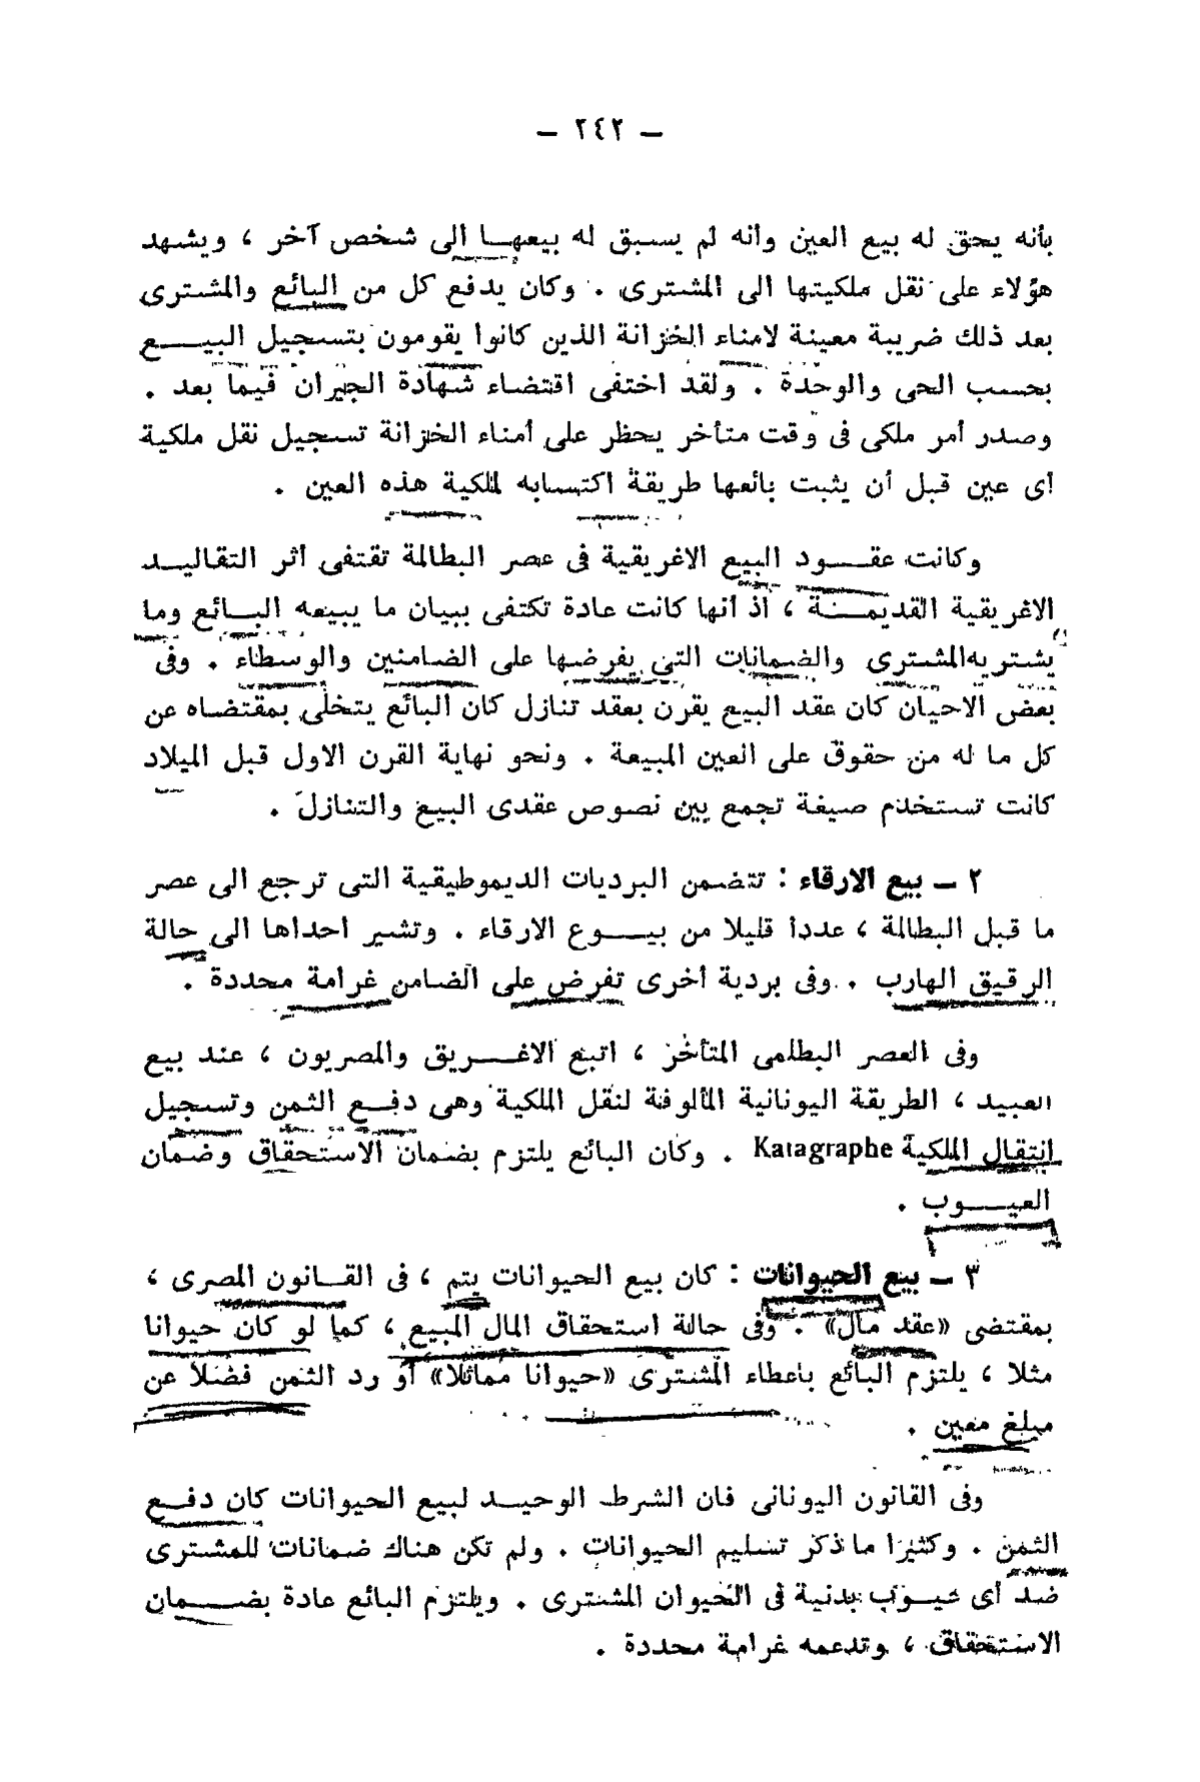 — ٢٤٢ —
بأنه يحق له بيع العين وأنه لم يسبق له بيعهـا الى شخص آخر ، ويشهد
هؤلاء على نقل ملكيتها الى المشترى . وكان يدفع كل من البائع والمشترى
بعد ذلك ضريبة معينة لامناء الخزانة الذين كانوا يقومون بتسجيل البيـــع
بحسب الحى والوحدة . ولقد اختفى اقتضاء شهادة الجيران فيما بعد .
وصدر أمر ملكى فى وقت متأخر يحظر على أمناء الخزانة تسجيل نقل ملكية
أى عين قبل أن يثبت بائعها طريقة اكتسابه لملكية هذه العين .
وكانت عقـــود البيع الاغريقية فى عصر البطالمة تقتفى أثر التقاليــد
الاغريقية القديمـــة ، اذ أنها كانت عادة تكتفى ببيان ما يبيعه البــائع وما
يشتريه المشترى والضمانات التى يفرضها على الضامنين والوسطاء . وفى
بعض الاحيان كان عقد البيع يقرن بعقد تنازل كان البائع يتخلى بمقتضاه عن
كل ما له من حقوق على العين المبيعة . ونحو نهاية القرن الاول قبل الميلاد
كانت تستخدم صيغة تجمع بين نصوص عقدى البيع والتنازل .
٢ — بيع الارقاء : تتضمن البرديات الديموطيقية التى ترجع الى عصر
ما قبل البطالمة ، عددا قليلا من بيـــوع الارقاء . وتشير احداها الى حالة
الرقيق الهارب . وفى بردية أخرى تفرض على الضامن غرامة محددة .
وفى العصر البطلمى المتأخر ، اتبع الاغـــريق والمصريون ، عند بيع
العبيد ، الطريقة اليونانية المألوفة لنقل الملكية وهى دفــع الثمن وتسجيل
انتقال الملكية Katagraphe . وكان البائع يلتزم بضمان الاستحقاق وضمان
العيـــوب .
٣ — بيع الحيوانات : كان بيع الحيوانات يتم ، فى القــانون المصرى ،
بمقتضى «عقد مال» . وفى حالة استحقاق المال المبيع ، كما لو كان حيوانا
مثلا ، يلتزم البائع باعطاء المشترى «حيوانا مماثلا» أو رد الثمن فضلا عن
مبلغ معين .
وفى القانون اليونانى فان الشرط الوحيــد لبيع الحيوانات كان دفــع
الثمن . وكثيرا ما ذكر تسليم الحيوانات . ولم تكن هناك ضمانات للمشترى
ضد أى عيــوب بدنية فى الحيوان المشترى . ويلتزم البائع عادة بضـــمان
الاستحقاق ، وتدعمه غرامة محددة .